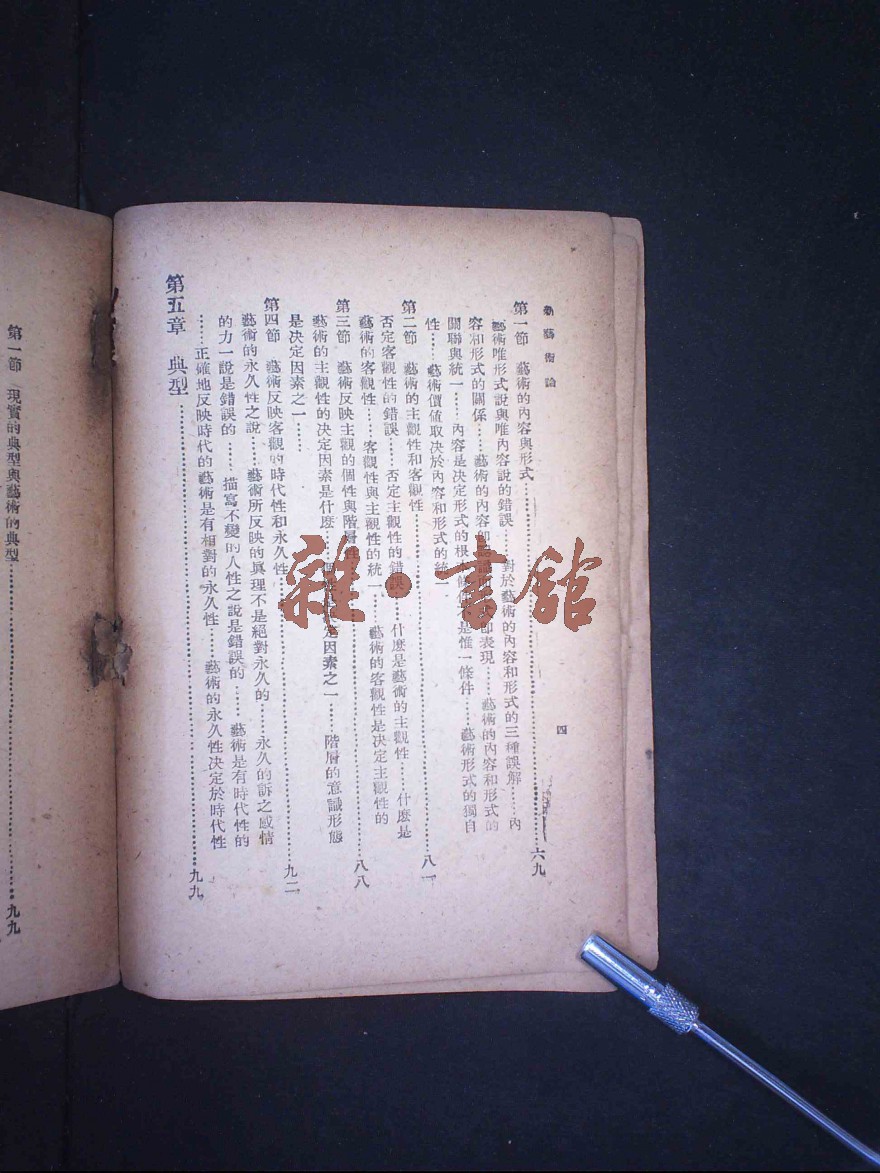 新藝術論
四
第一節 藝術的內容與形式……六九
藝術唯形式說與唯內容說的錯誤……對於藝術的內容和形式的三種誤解……內
容和形式的關係……藝術的內容和表現……藝術的內容和形式的
關聯與統一……內容是決定形式的根本條件不是惟一條件……藝術形式的獨自
性……藝術價値取决於內容和形式的統一
第二節 藝術的主觀性和客觀性……八一
否定客觀性的錯誤……否定主觀性的錯誤……什麽是藝術的主觀性……什麽是
藝術的客觀性……客觀性與主觀性的統一……藝術的客觀性是決定主觀性的
第三節 藝術反映主觀的個性與階層性……八八
藝術的主觀性的决定因素是什麽……因素之一……階層的意識形態
是决定因素之一……
第四節 藝術反映客觀的時代性和永久性……九二
藝術的永久性之說……藝術所反映的眞理不是絕對永久的……永久的訴之感情
的力一說是錯誤的……描寫不變的人性之說是錯誤的……藝術是有時代性的
……正確地反映時代的藝術是有相對的永久性……藝術的永久性决定於時代性
第五章 典型……九九
第一節 現實的典型與藝術的典型……九九
雜·書舘